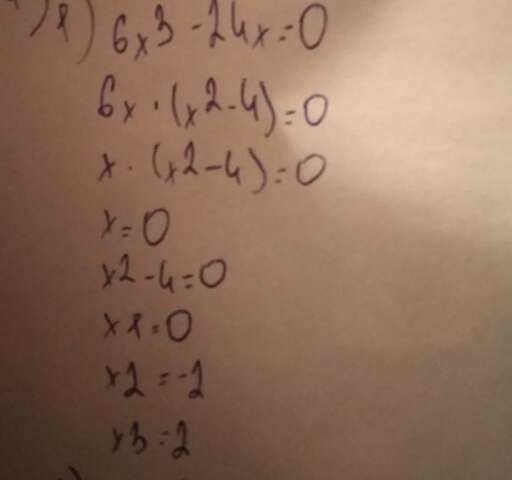 8) 6x3-24x=0
6x·(x2-4)=0
x·(x2-4)=0
x=0
x2-4=0
x1=0
x2=-2
x3=2